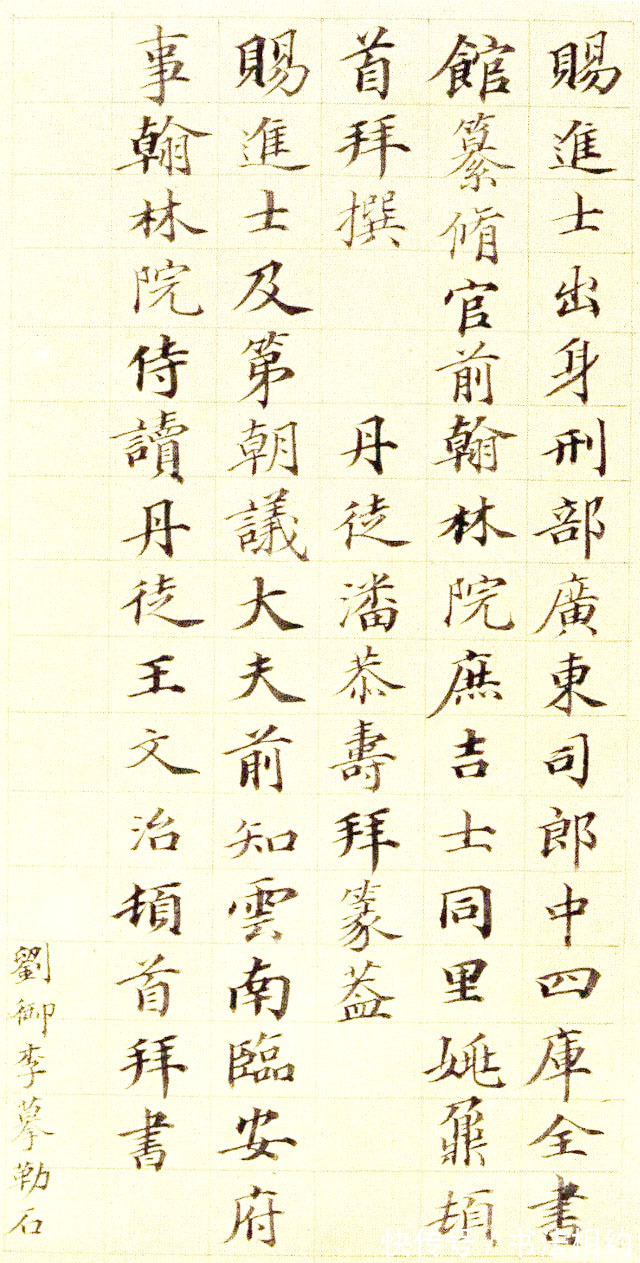 賜進士出身刑部廣東司郎中四庫全書
館纂脩官前翰林院庶吉士同里姚鼐頓
首拜撰 丹徒潘恭壽拜篆蓋
賜進士及第朝議大夫前知雲南臨安府
事翰林院侍讀丹徒王文治頓首拜書
劉御李摹勒石
快传号/书法相约